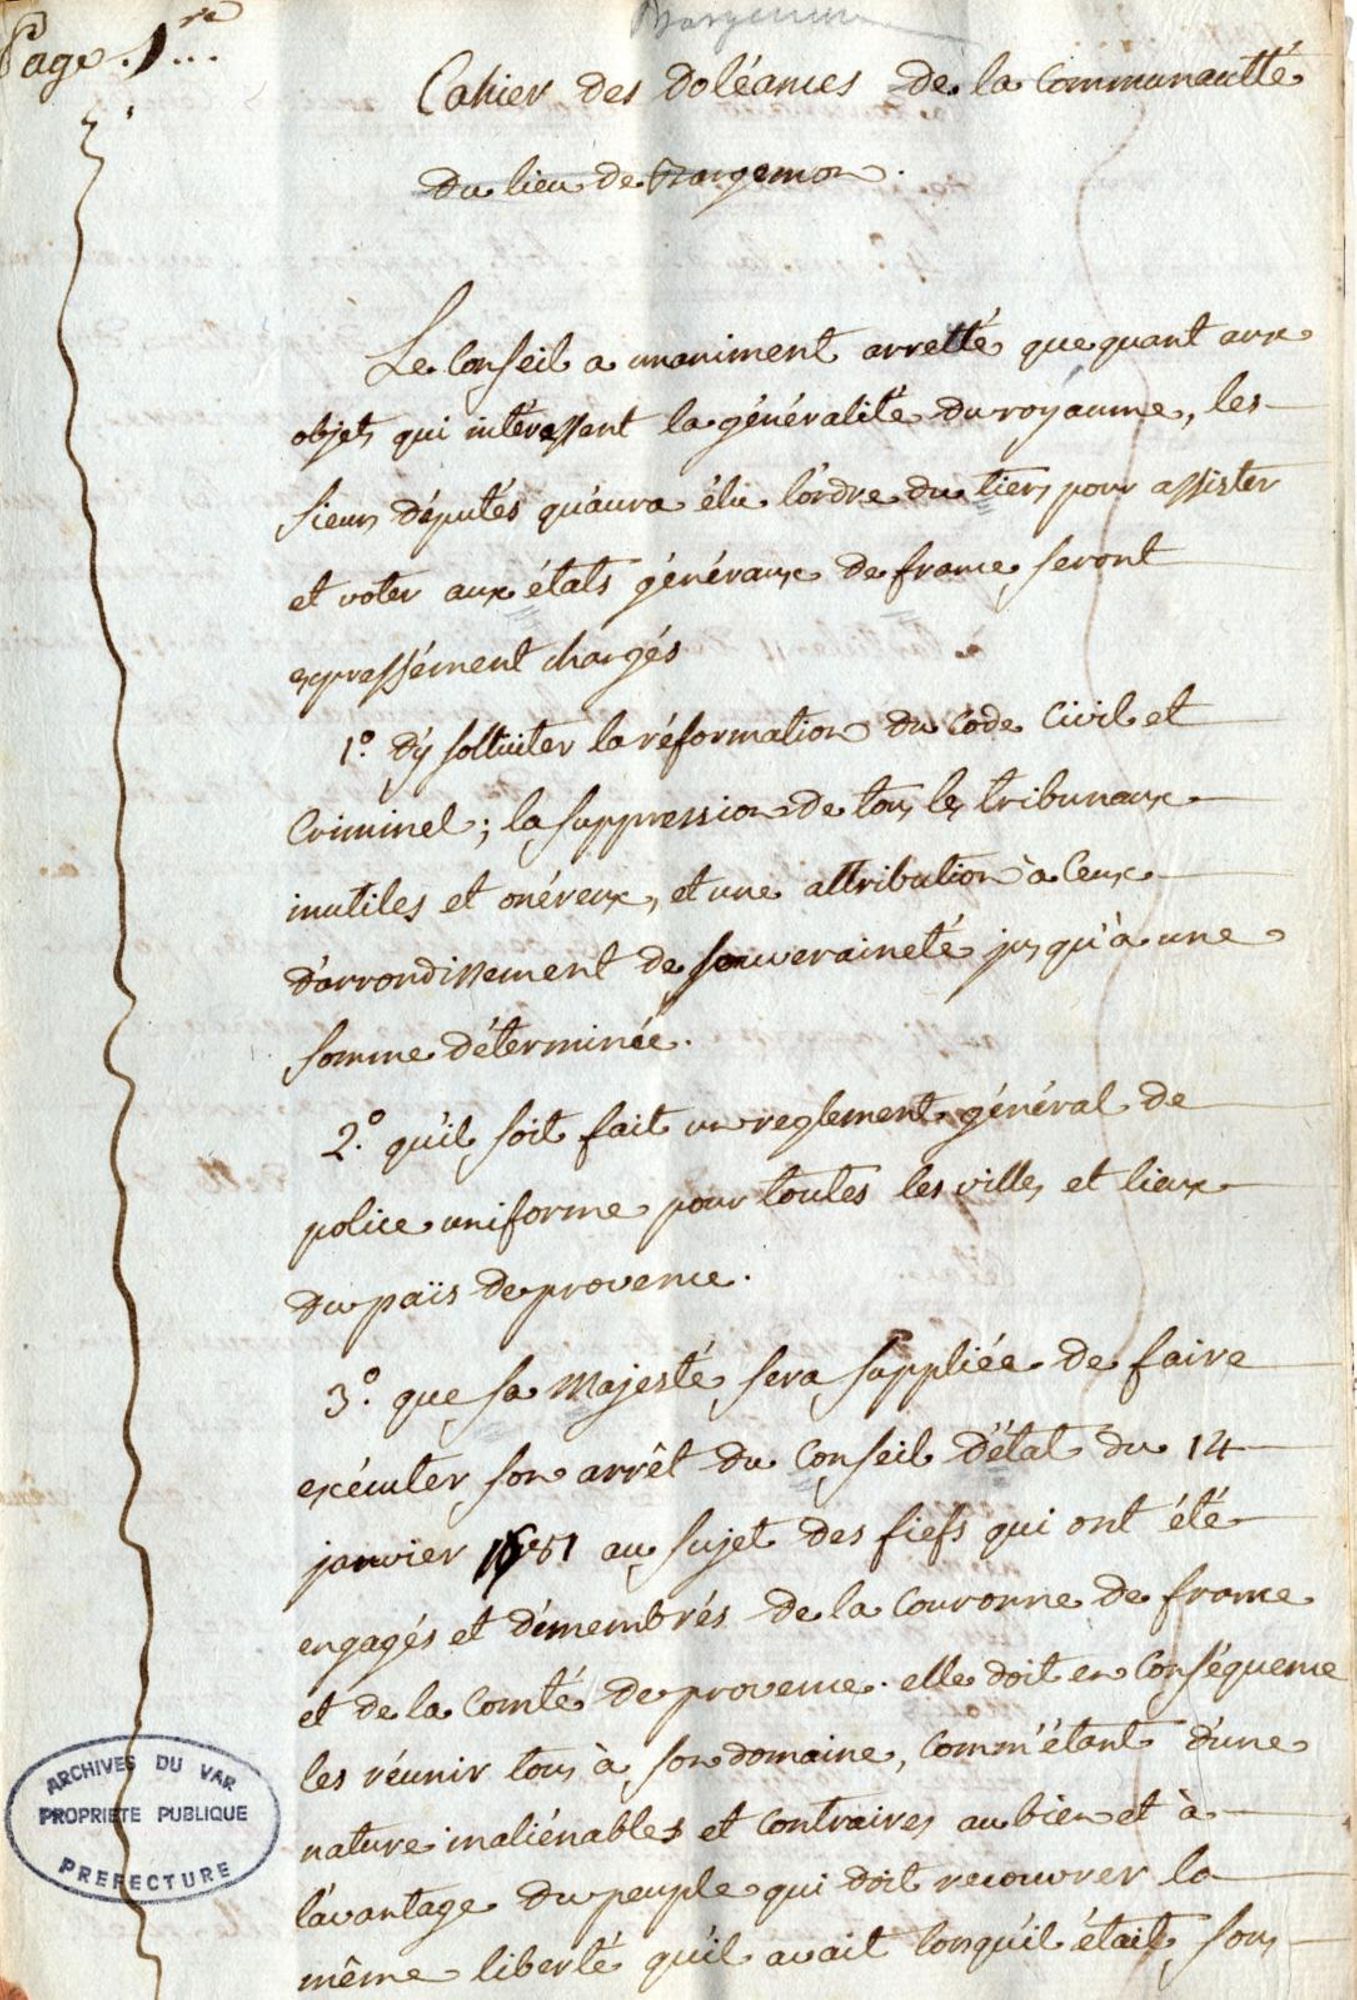 Page 1re...
Bargemon
Cahier des doléances de la Communautté
du lieu de Bargemon.
Le Conseil a unaniment arretté que quant aux
objets qui intéressent la généralité du royaume, les
sieurs députés qu'aura élu l'ordre du tiers pour assister
et voter aux états généraux de france seront
expressément chargés
1º. d'y solliciter la réformation du Code Civil et
Criminel; la suppression de tous les tribunaux
inutiles et onéreux, et une attribution à Ceux
d'arrondissement de souveraineté jusqu'à une
somme déterminée.
2º. qu'il soit fait un reglement général de
police uniforme pour toutes les villes et lieux
du païs de provence.
3º. que sa Majesté sera suppliée de faire
exécuter son arrêt du Conseil d'état du 14
janvier au sujet des fiefs qui ont été
engagés et démembrés de la Couronne de france
et de la Comté de provence. elle doit en Conséquence
les réunir tous à son domaine, Comm'étant d'une
nature inaliénables et Contraires au bien et à
l'avantage du peuple qui doit recouvrer la
même liberté qu'il avait lorsqu'il était sous
ARCHIVES DU VAR
PROPRIETE PUBLIQUE
PREFECTURE